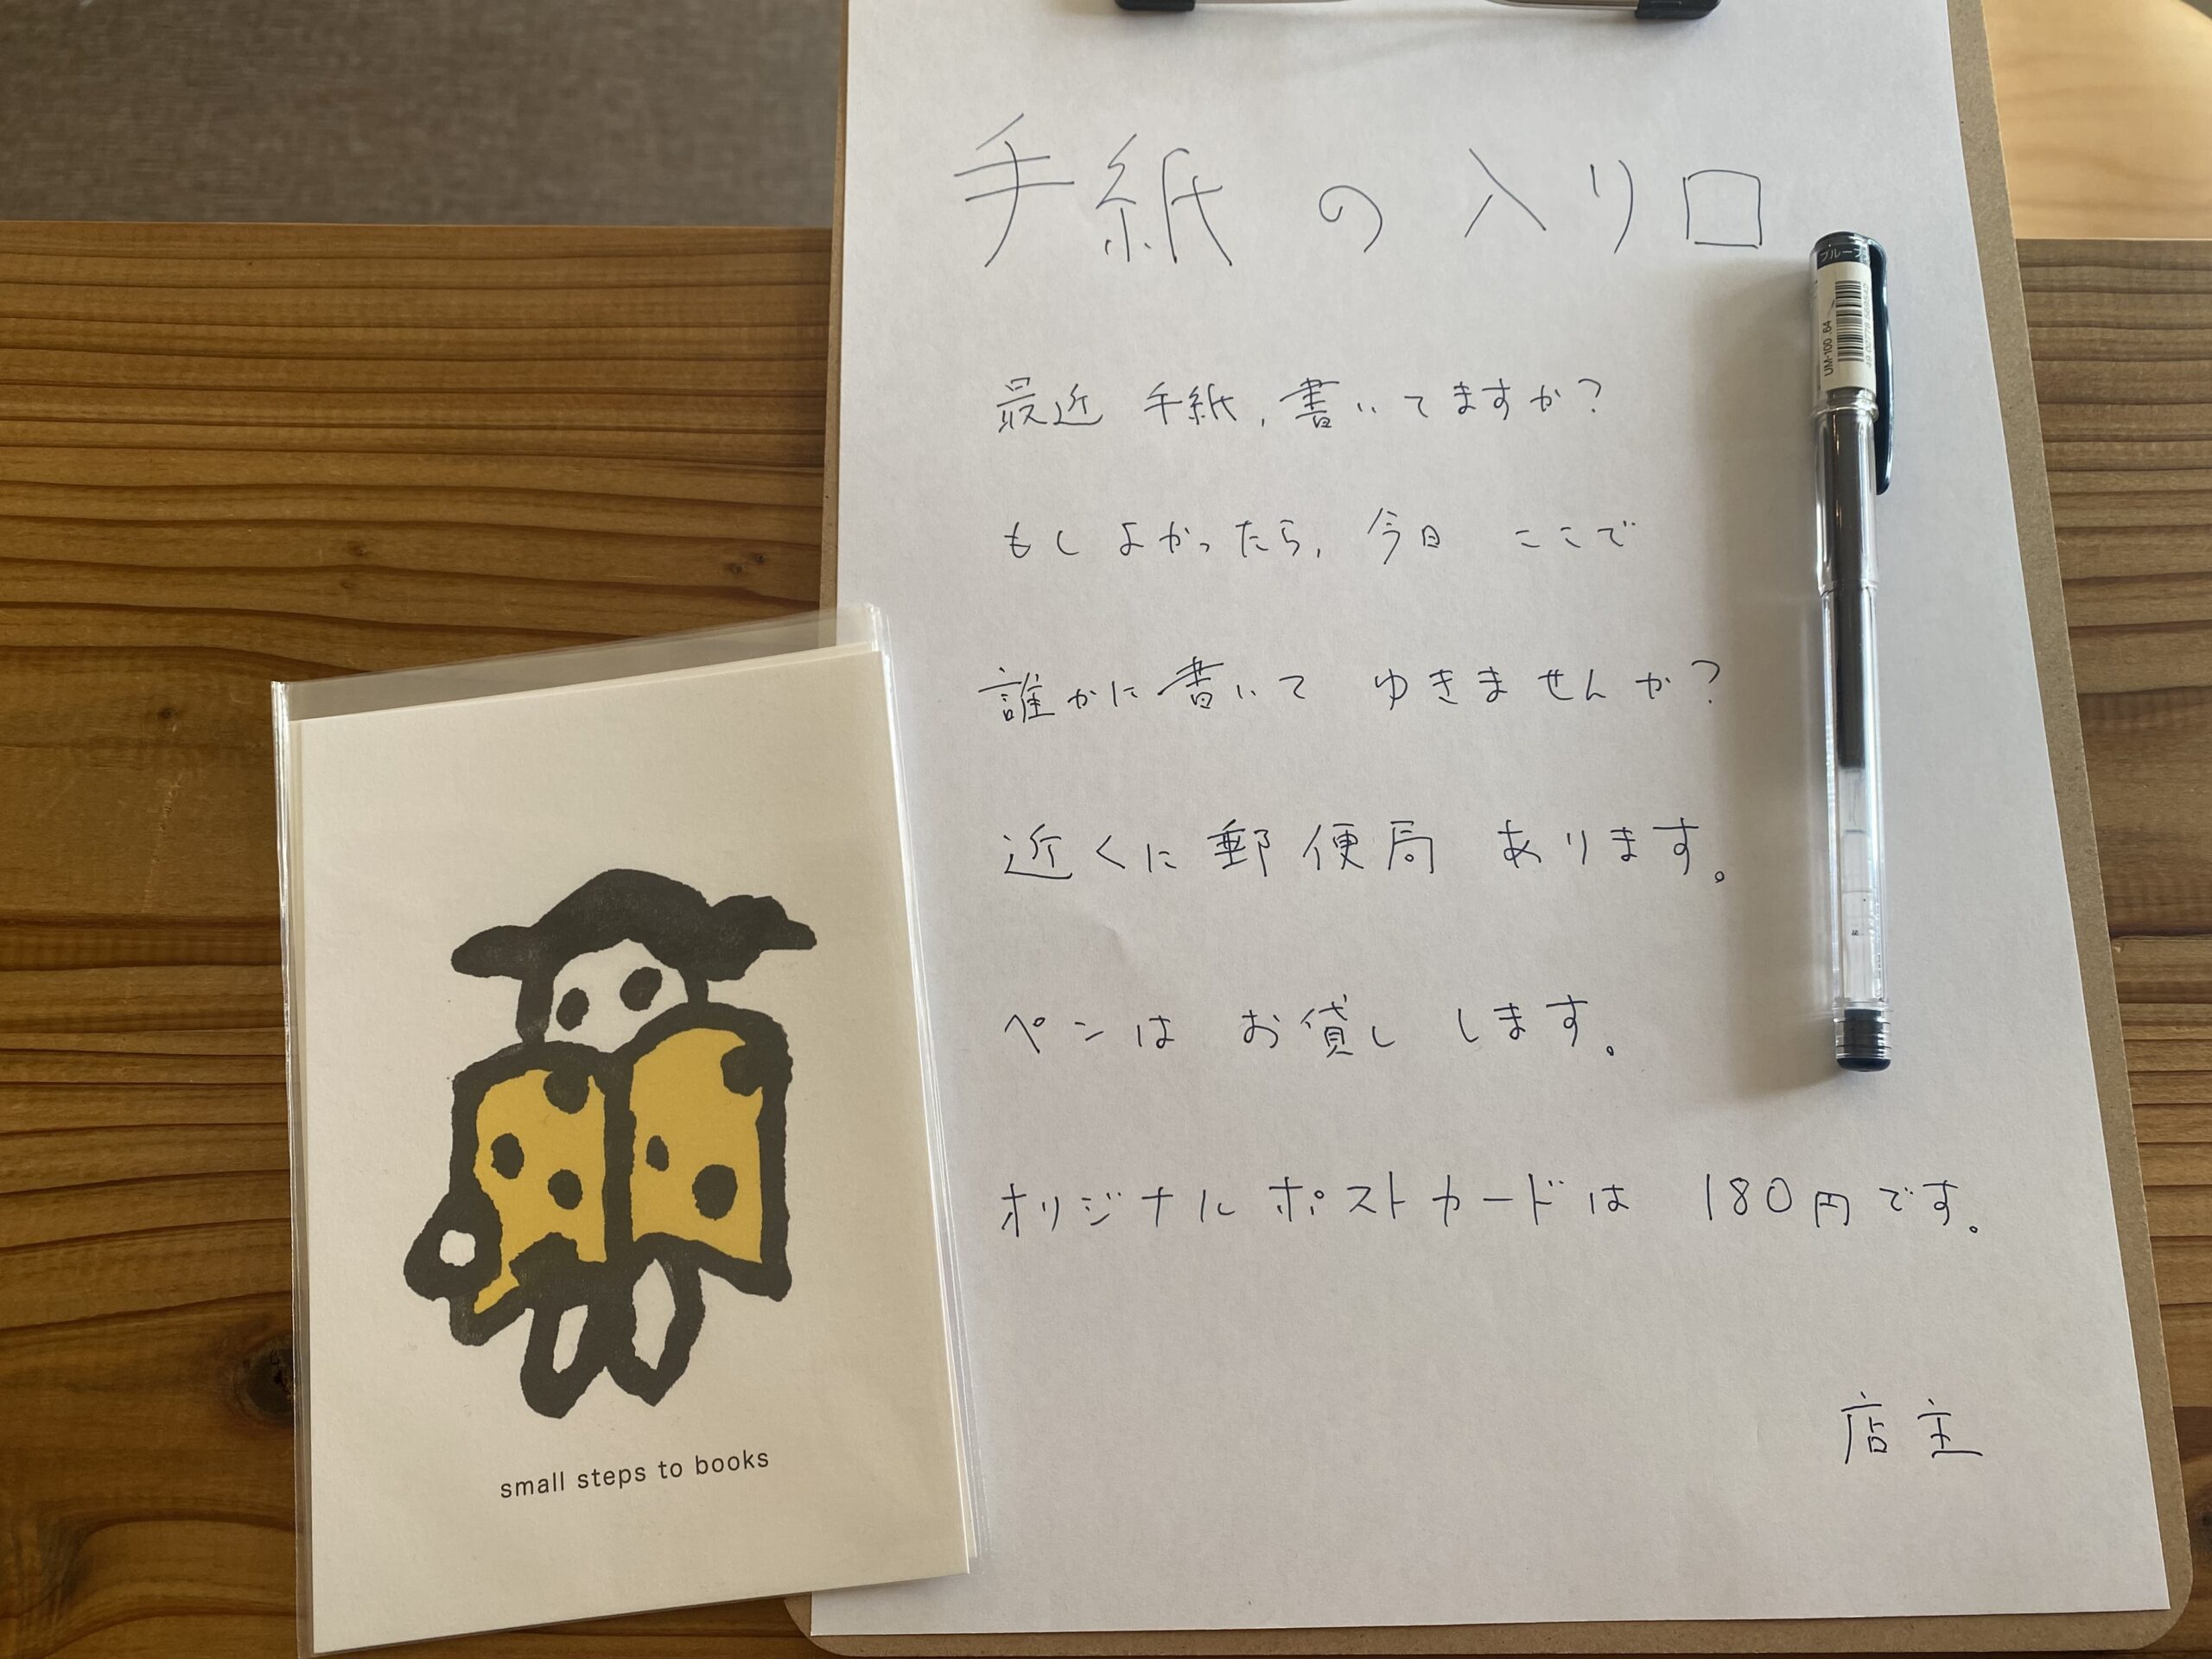 手紙の入り口
最近 手紙、書いてますか?
もしよかったら、今日 ここで
誰かに書いて ゆきませんか?
近くに郵便局 あります。
ペンは お貸し します。
オリジナルポストカードは 180円です。
店主
small steps to books
UM-100.64